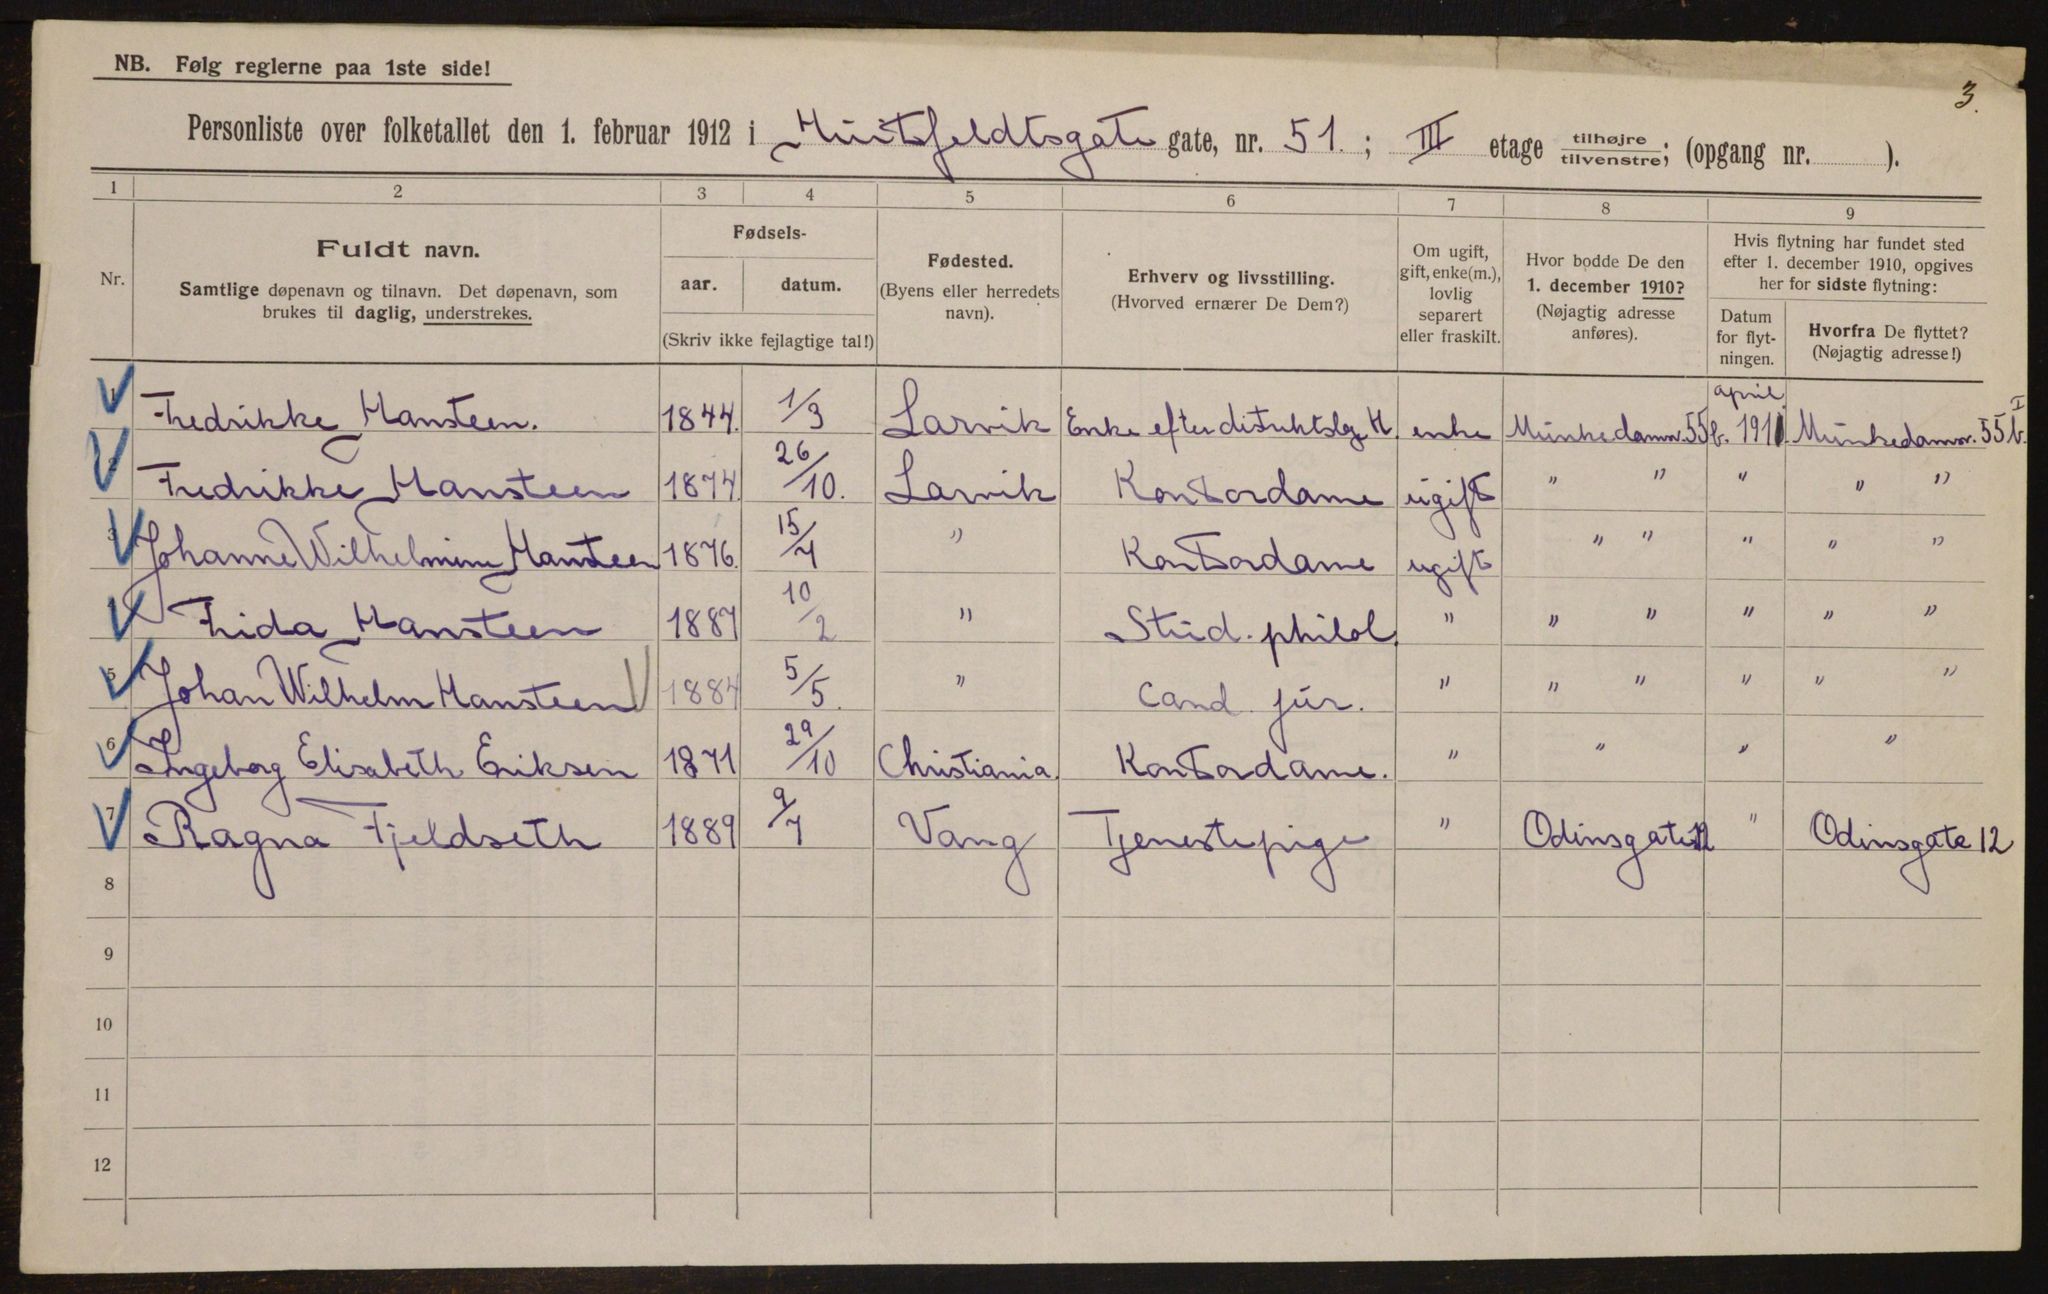 3.
NB. Følg reglerne paa 1ste side!
Personliste over folketallet den 1. februar 1912 i Huitsfeldtsgate gate, nr. 51. ; III etage tilhøjre tilvenstre; (opgang nr. ).
1 2 3 4 5 6 7 8 9
Nr.
Fuldt navn.
Samtlige døpenavn og tilnavn. Det døpenavn, som
brukes til daglig, understrekes.
Fødsels-
aar. datum.
(Skriv ikke fejlagtige tal!)
Fødested.
(Byens eller herredets
navn).
Erhverv og livsstilling.
(Hvorved ernærer De Dem?)
Om ugift,
gift, enke(m.),
lovlig
separert
eller fraskilt.
Hvor bodde De den
1. december 1910?
(Nøjagtig adresse
anføres).
Hvis flytning har fundet sted
efter 1. december 1910, opgives
her for sidste flytning:
Datum
for flyt-
ningen.
Hvorfra De flyttet?
(Nøjagtig adresse!)
1 Fredrikke Hansteen. 1844. 1/3 Larvik Enke efter distriktslæge H. enke Munkedamsv. 55 b. april 1911. Munkedamsv. 55 b. I
2 Fredrikke Hansteen 1874. 26/10. Larvik Kontordame ugift " " " " "
3 Johanne Wilhelmine Hansteen 1876. 15/7 " Kontordame ugift " " " " "
Frida Hansteen 1887 10/2 " Stud. philol. " " " " " "
5 Johan Wilhelm Hansteen 1884 5/5. " Cand. jur. " " " " " "
6 Ingeborg Elisabeth Eriksen 1871 29/10 Christiania. Kontordame. " " " "
7 Ragna Fjeldseth 1889 9/7 Vang Tjenestepige " Odinsgate 12 " Odinsgate 12
8
9
10
11
12